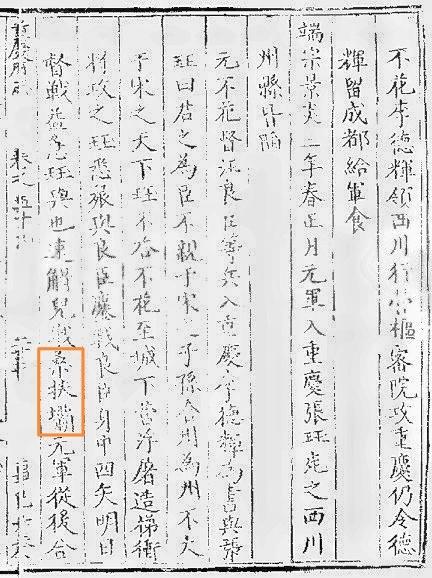 不花李德輝領西川行樞密院攻重慶仍令德
輝留成都給軍食
端宗景炎二年春正月元軍入重慶張珏之西川
州縣皆陷
元不花督汪良臣等兵入重慶李德輝為書與張
珏曰君之為臣不親于宋之子孫合州為州不大
于宋之天下珏不答不花至城下營浮屠造梯衝
將攻之珏悉衆與良臣鏖戰良臣身中四矢明日
督戰益急珏與也速解兒戰桑扶壩元軍從後合
重慶府志 卷之